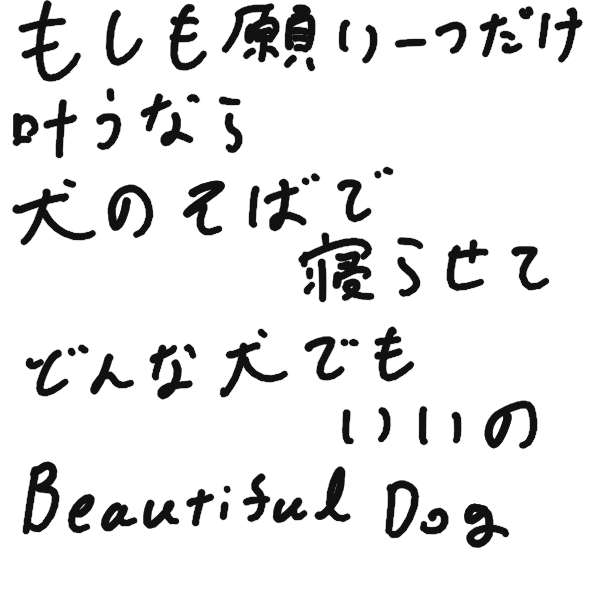 もしも願い一つだけ
叶うなら
犬のそばで
寝らせて
どんな犬でも
いいの
Beautiful Dog